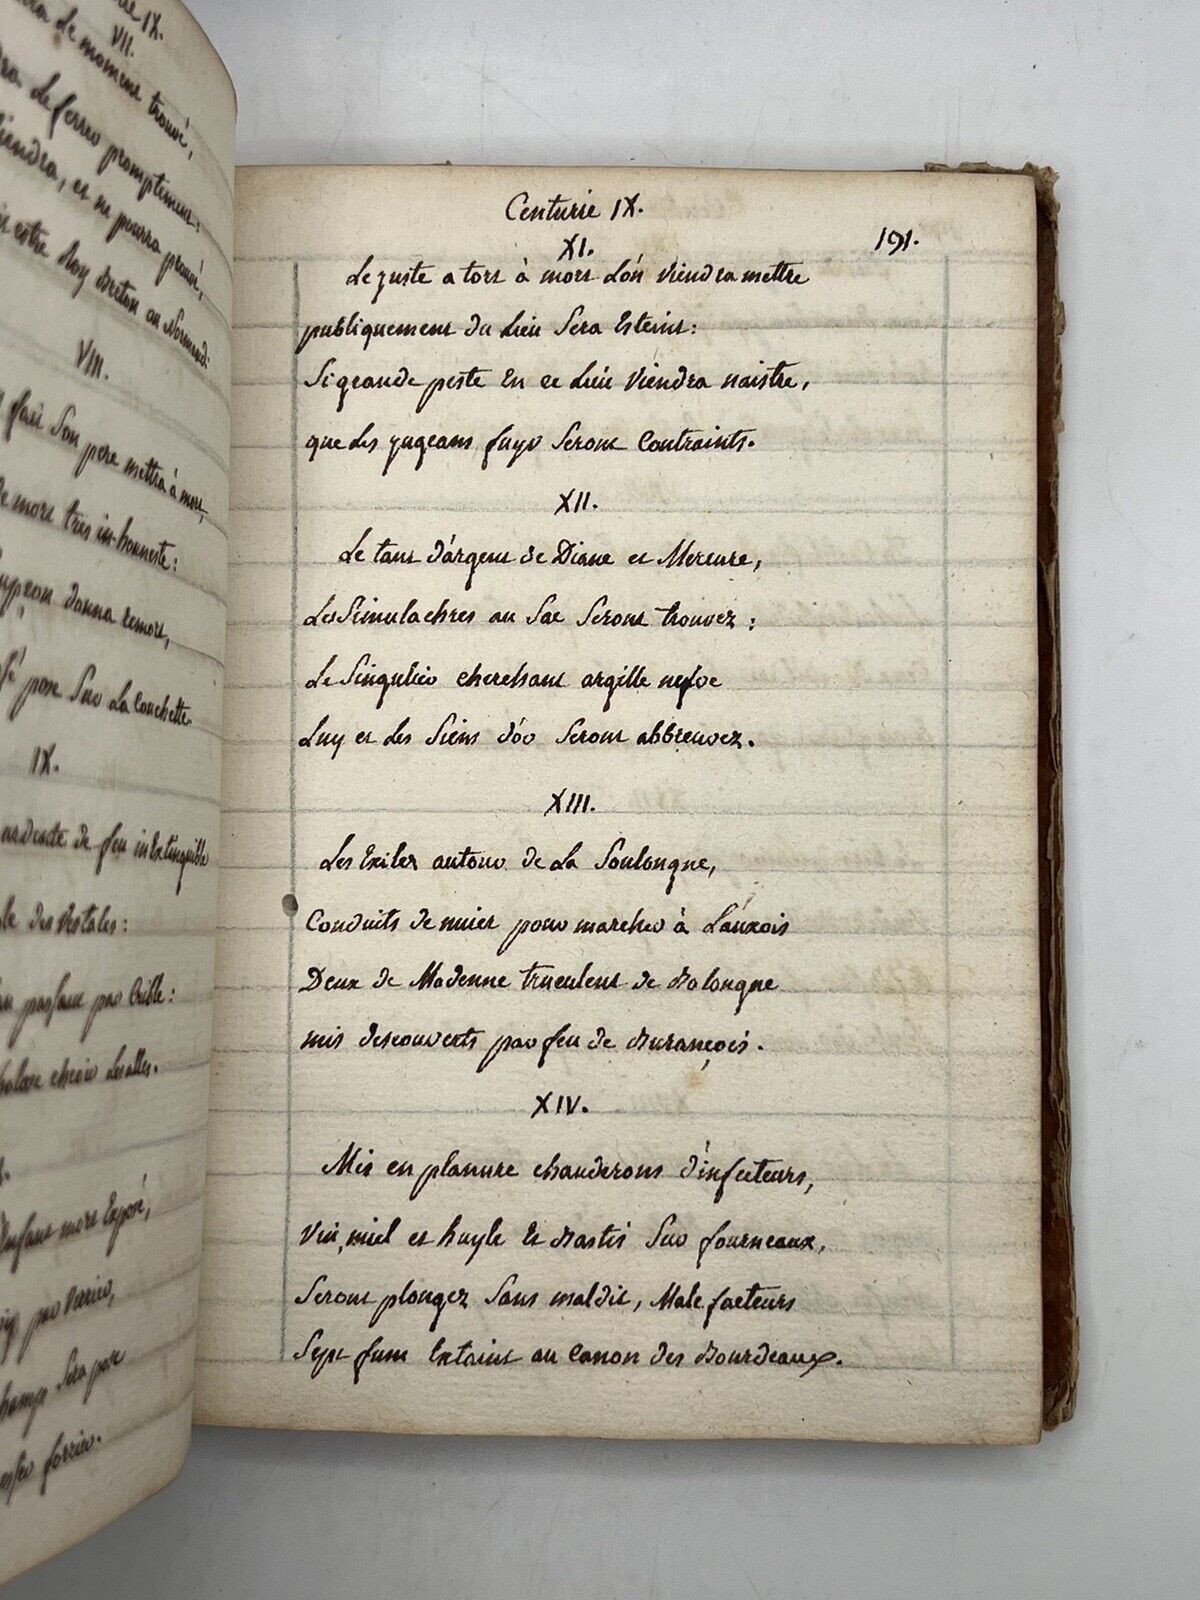 IX.
VII.
de momene trouvé,
Le ferreo promptement:
viendra, et ne pourra prouvé,
estre Roy Breton ou Normend.
VIII.
fait Son pere mettra à mort,
de mort tres in-honneste:
donna remort,
pose Suo La Couchette
IX.
ardente de feu inExtinguible
des Vestales:
passant par Crible:
cheoir Les alles.
mort Exposé,
par Verrier,
champ Sera pose
forrier.
Centurie IX.
191.
XI.
Le juste a tort à mort L'on Viendra mettre
publiquement du Lieu Sera Esteint:
Si grande peste En ce Lieu Viendra naistre,
que Les jugeans fuyr Seront Contraints.
XII.
Le tant d'argent de Diane et Mercure,
Les Simulachres au Lac Seront trouvez:
Le Singulier cherchant argille nefve
Luy et Les Siens d'or Seront abbreuvez.
XIII.
Les Exilez autour de La Soulongne,
Conduits de nuict pour marcher à L'auxois
Deux de Modenne truculent de Bolongne
mis descouverts par feu de Burançois.
XIV.
Mis en planure chauderons d'infecteurs,
Vin, miel et huyle Et Bastis Sur fourneaux,
Seront plongez Sans maldit, Male facteurs
Sept fum Extaint au Canon des Bourdeaux.